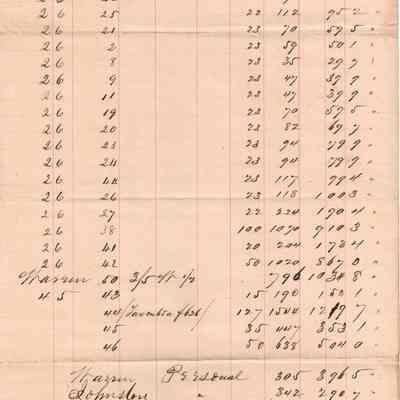 26 25 22 112 952 "
26 21 23 70 595 "
26 2 23 59 501 "
26 8 23 35 297 "
26 9 23 47 399 "
26 11 23 47 399 "
26 19 22 70 595 "
26 20 23 82 697 "
26 23 23 94 799 "
26 24 23 94 799 "
26 23 117 994 "
26 26 23 118 1003 "
26 27 22 224 1904 "
26 38 100 1070 9103 "
26 41 20 204 1734 "
26 42 50 1020 8670 "
Warren 50 3/5 W 1/2 796 10308 "
45 43 15 190 1501 "
44 127 1544 12197 "
45 35 447 3531 "
46 58 638 5040 "
Warren Personal 305 3965 "
Johnston " 342 2907 "